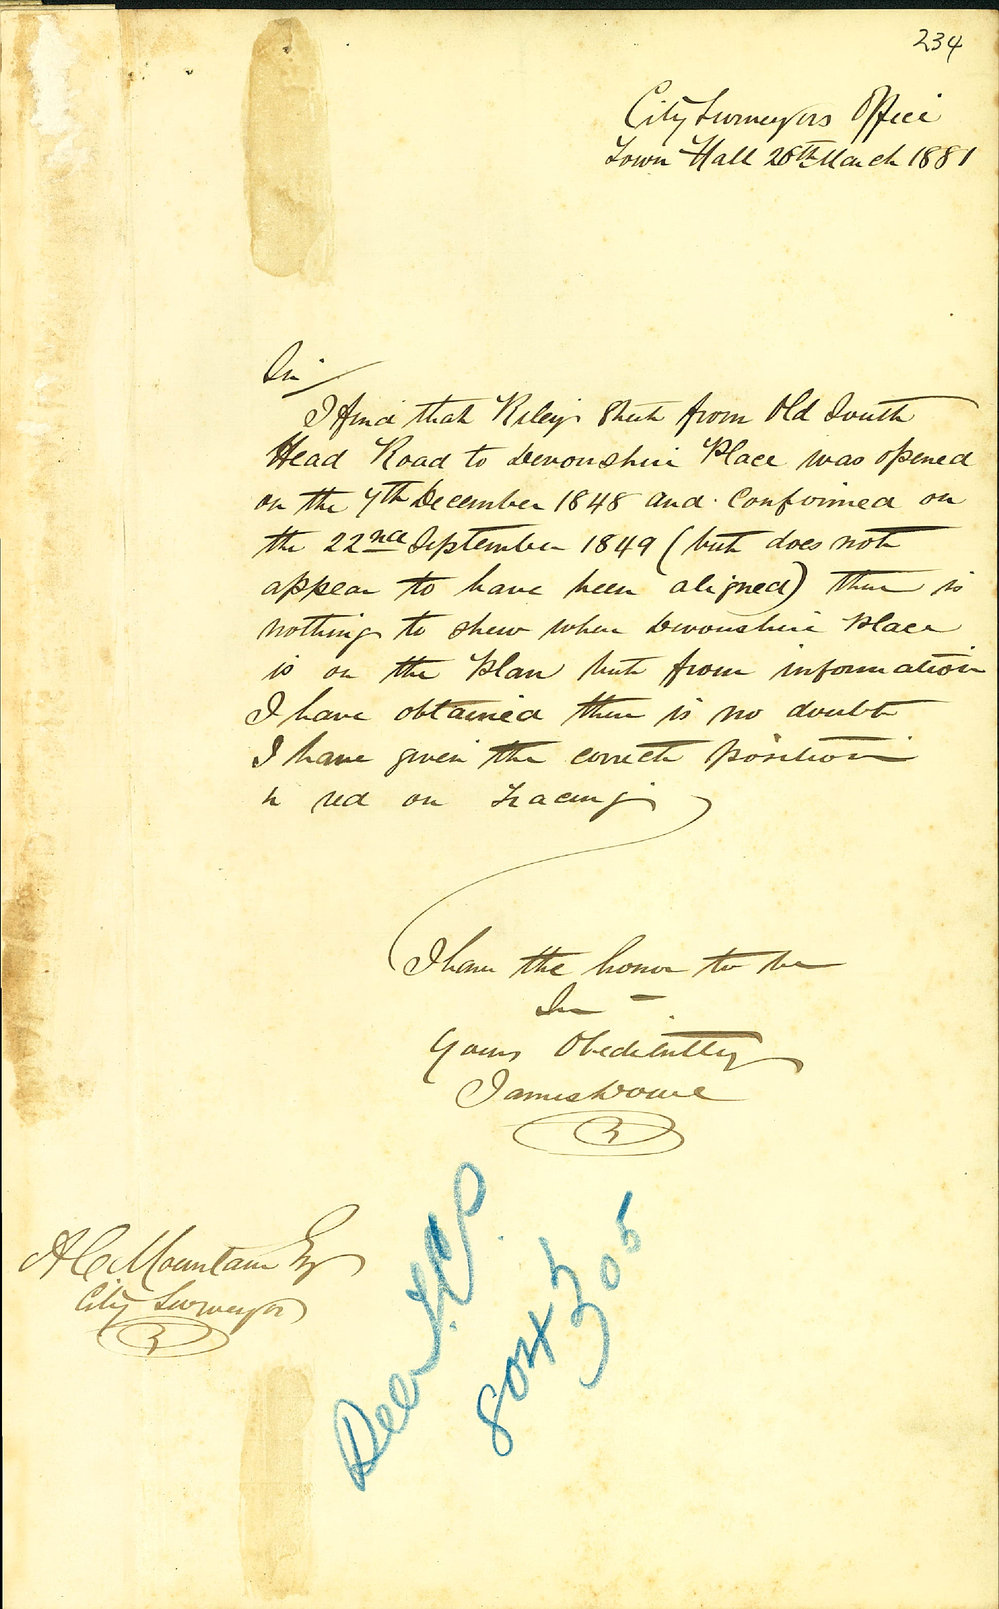 234
City Surveyors Office
Town Hall 28th March 1881
Sir
I find that Riley Street from Old South
Head Road to Devonshire Place was opened
on the 7th December 1848 and Confirmed on
the 22nd September 1849 (but does not
appear to have been aligned) there is
nothing to shew where Devonshire Place
is on the Plan but from information
I have obtained there is no doubt
I have given the correct position
in red on Tracing
I have the honor to be
Sir
Yours Obediently
James
A C Mountain Esq
City Surveyor
305